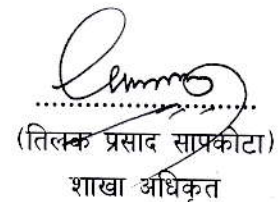 (तिलक प्रसाद सापकोटा)
शाखा अधिकृत